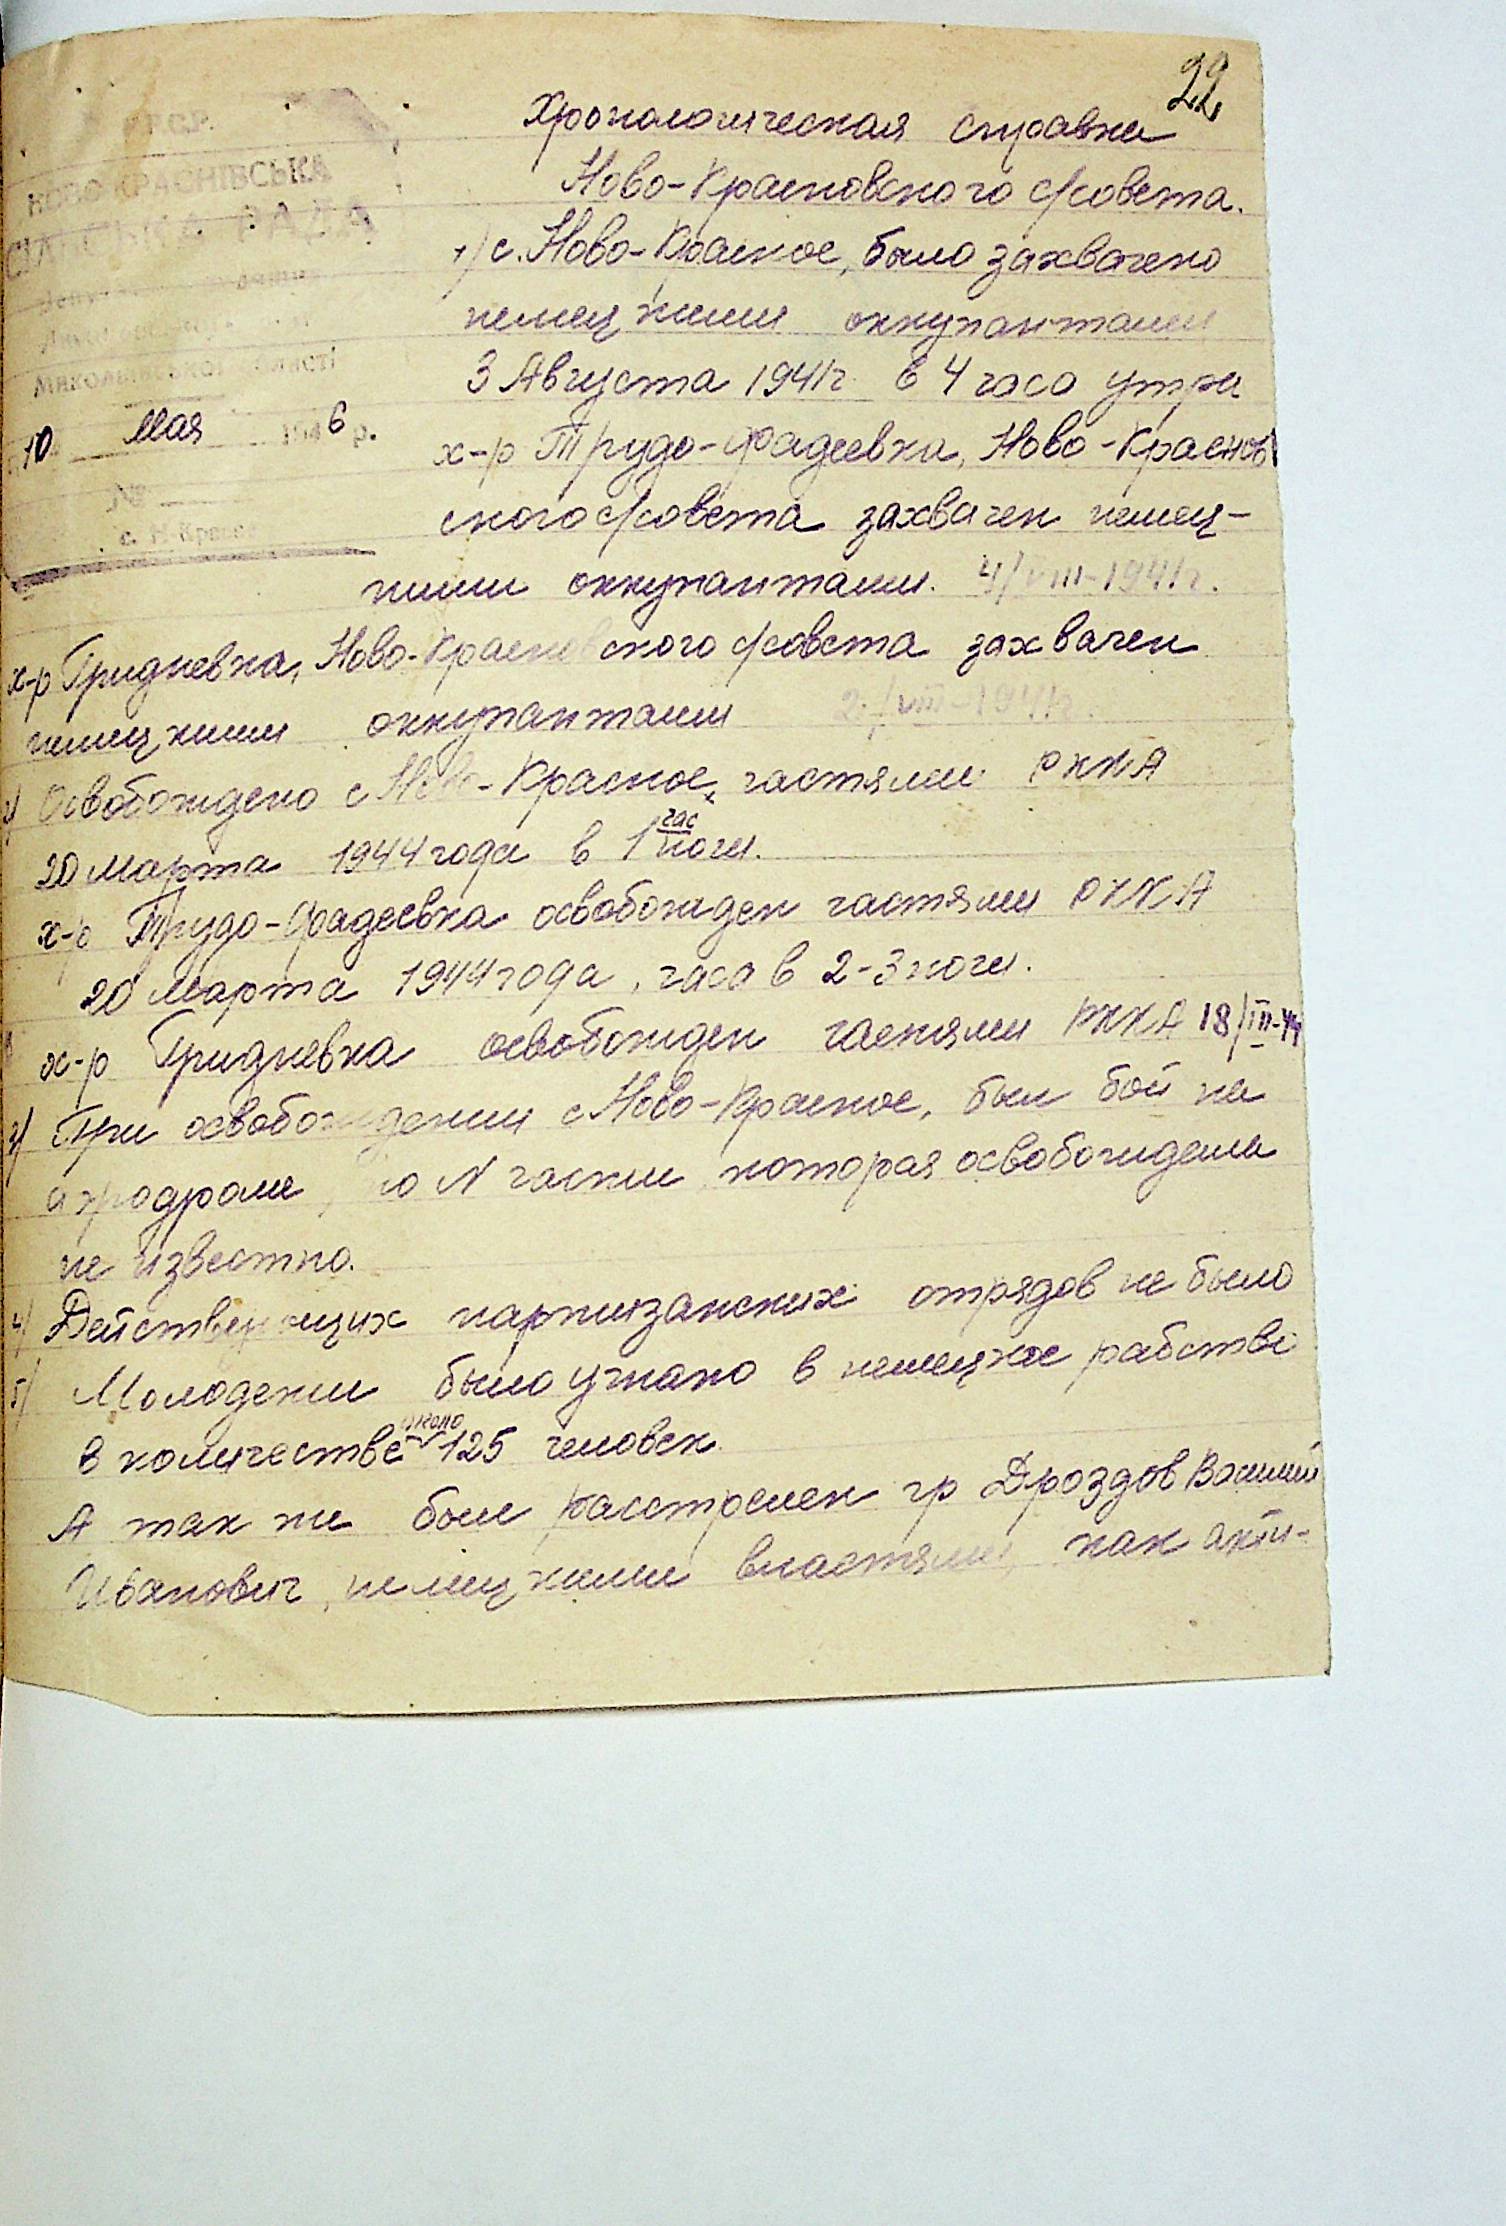 22
У.Р.С.Р.
НОВОКРАСНІВСЬКА
СІЛЬСЬКА РАДА
МИКОЛАЇВСЬКОЇ ОБЛАСТІ
10 Мая 1946 р.
№
с. Н. Красне
Хронологическая справка
Ново-Красновского с/совета.
1/ с. Ново-Красное, было захвачено
немецкими оккупантами
3 Августа 1941г. в 4 часа утра
х-р Трудо-Фадеевка, Ново-Краснов
ского с/совета захвачен немец-
кими оккупантами. 4/VIII-1941г.
х-р Гридневка, Ново-Красновского с/совета захвачен
немецкими оккупантами 2/VIII-1941г.
2/ Освобождено с Ново-Красное, частями РККА
20 марта 1944 года в 1 час ночи.
х-р Трудо-Фадеевка освобожден частями РККА
20 марта 1944 года, часа в 2-3 ночи.
х-р Гридневка освобожден частями РККА 18/III-44
3/ При освобождении с Ново-Красное, был бой на
аэродроме, но N части которая освобождала
не известно.
4/ Действующих партизанских отрядов не было
5/ Молодежи было угнано в немецкое рабство
в количестве около 125 человек.
А так же был расстрелен гр Дроздов Василий
Иванович, немецкими властями, как акти-